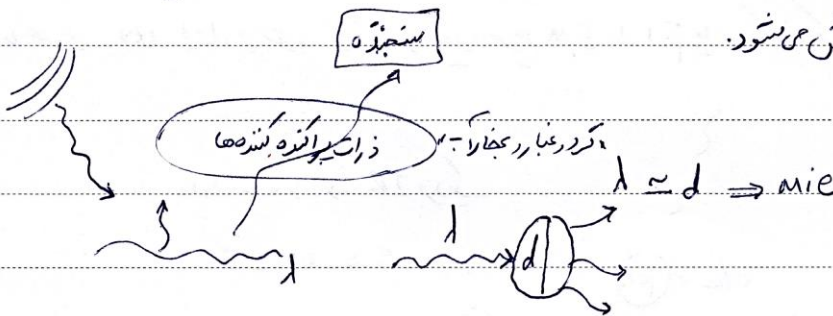 می‌شود.
سنجنده
ذرات پراکنده کننده‌ها گرد و غبار و بخار آب
λ ≃ d ⇒ mie
λ
λ
d